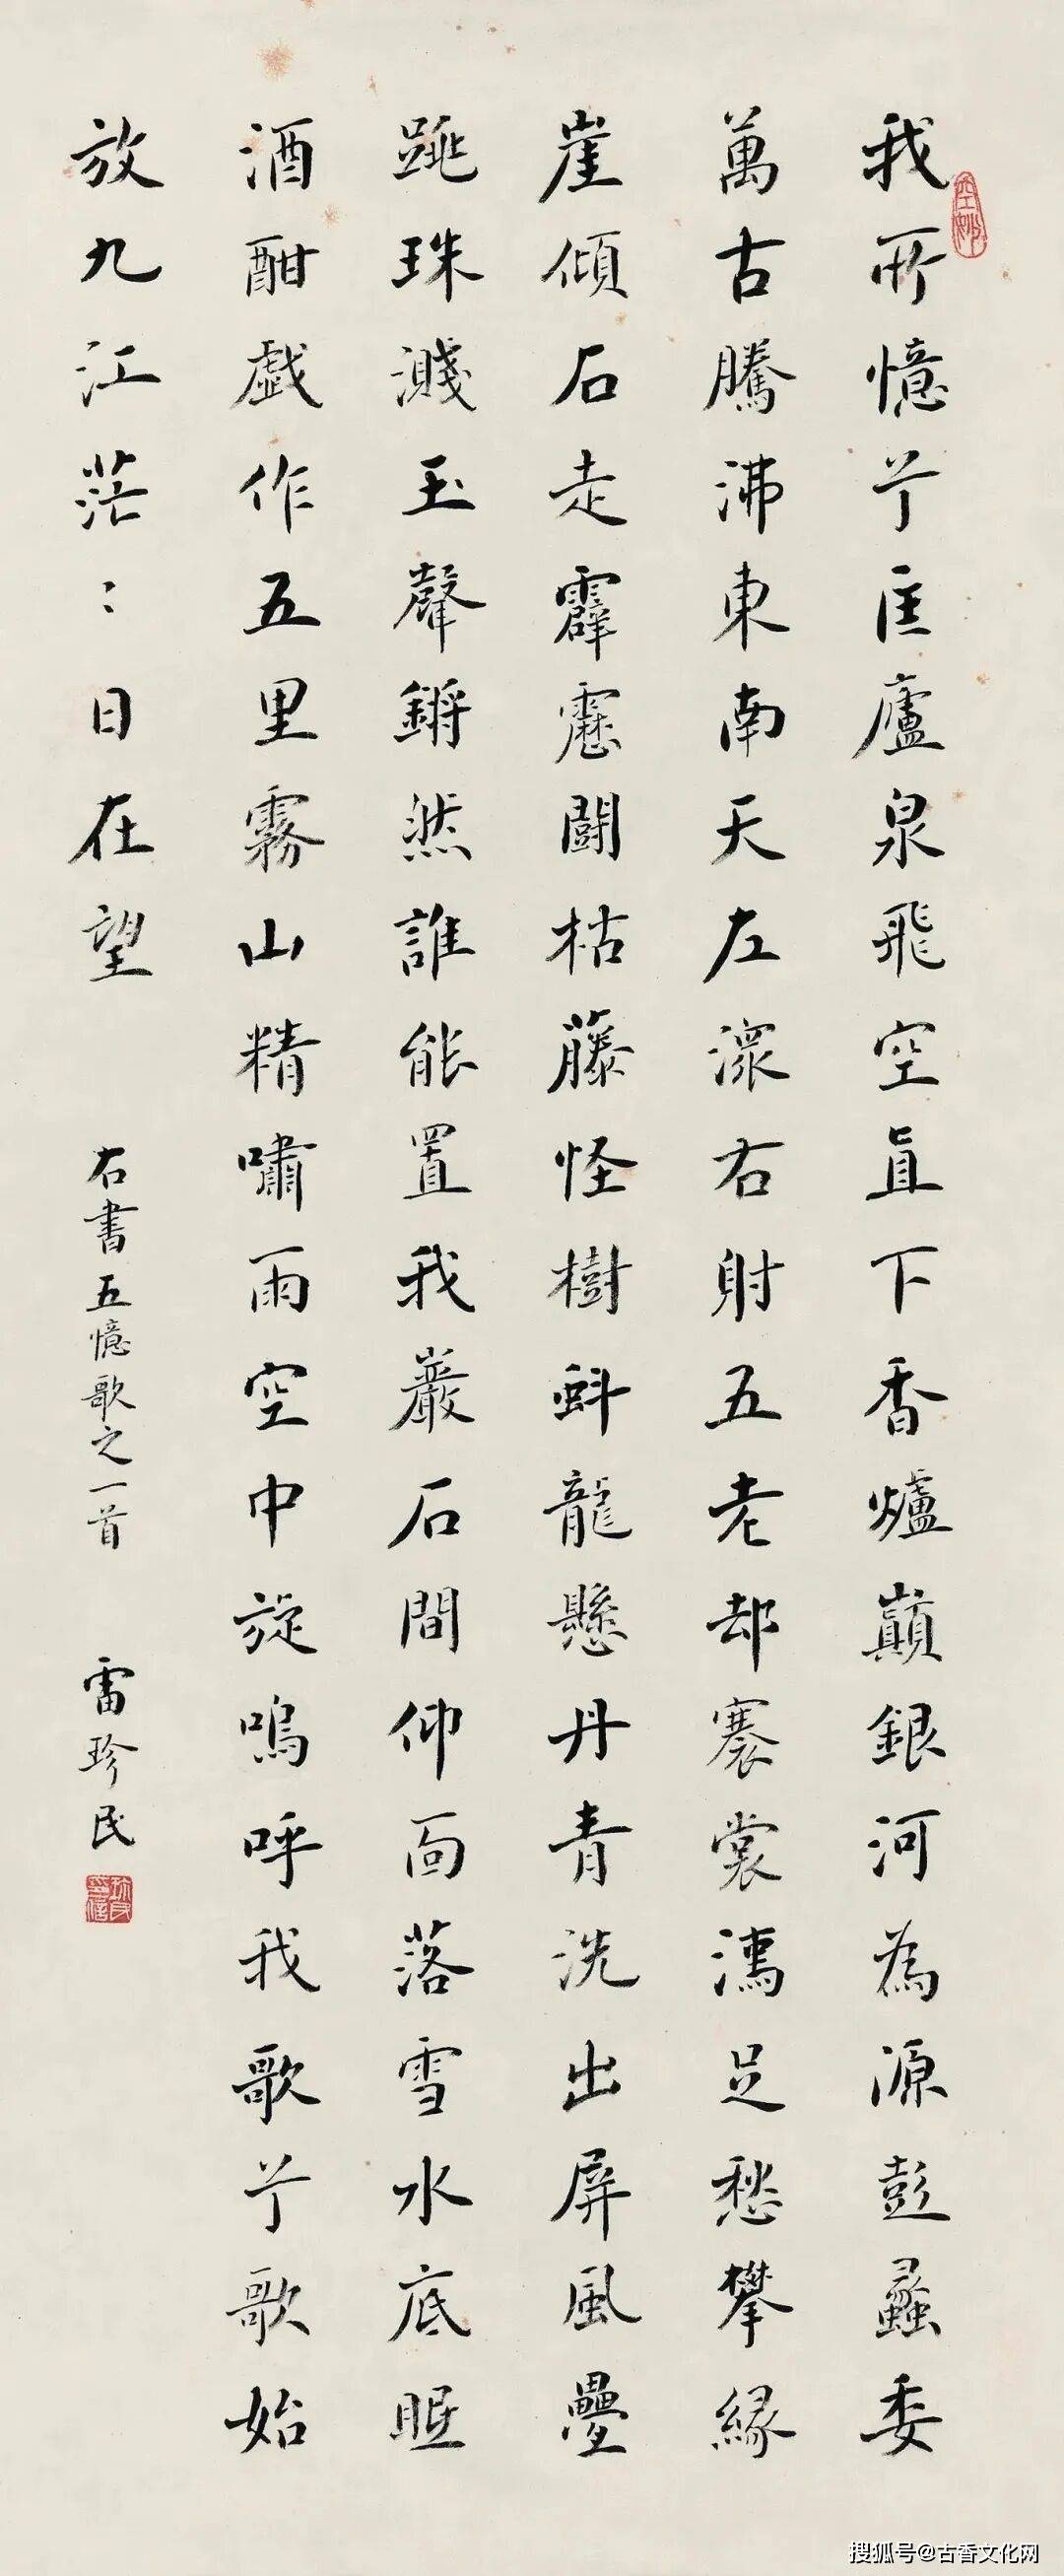 我所憶兮匡廬泉飛空直下香爐巔銀河為源彭蠡委
萬古騰沸東南天左瀠右射五老却褰裳濡足愁攀緣
崖傾石走霹靂鬪枯藤怪樹虯龍懸丹青洗出屏風疊
跳珠濺玉聲鏘然誰能置我巖石間仰面落雪水底眠
酒酣戲作五里霧山精嘯雨空中旋嗚呼我歌兮歌始
放九江茫〻日在望
右書五憶歌之一首
雷珍民
搜狐号@古香文化网